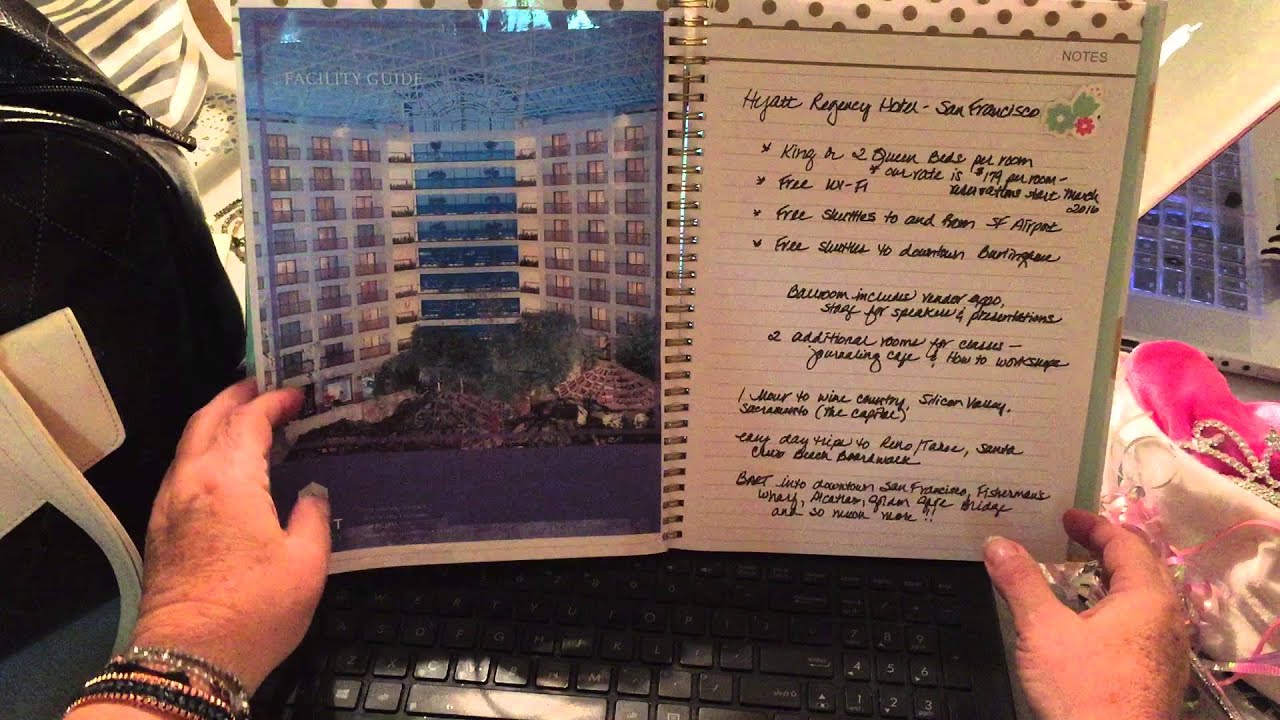 FACILITY GUIDE
NOTES
Hyatt Regency Hotel - San Francisco
* King or 2 Queen Beds per room
* our rate is $179 per room -
* Free Wi-Fi
reservations start March
2016
* Free shuttles to and from SF Airport
* Free shuttles to downtown Burlingame
Ballroom includes vendor expo,
stage for speakers & presentations
2 additional rooms for classes -
journaling cafe & How to workshops
1 Hour to wine country, Silicon Valley,
Sacramento (the capital)
easy day trips to Reno/Tahoe, Santa
Cruz Beach Boardwalk
BART into downtown San Francisco, Fishermans
Wharf, Alcatraz, Golden Gate Bridge
and so much more!!